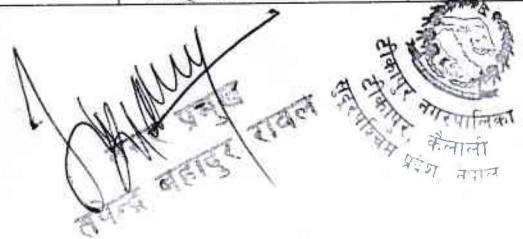 प्रमुख
तपेन्द्र बहादुर रावल
टीकापुर नगरपालिका
टीकापुर, कैलाली
सुदूरपश्चिम प्रदेश, नेपाल